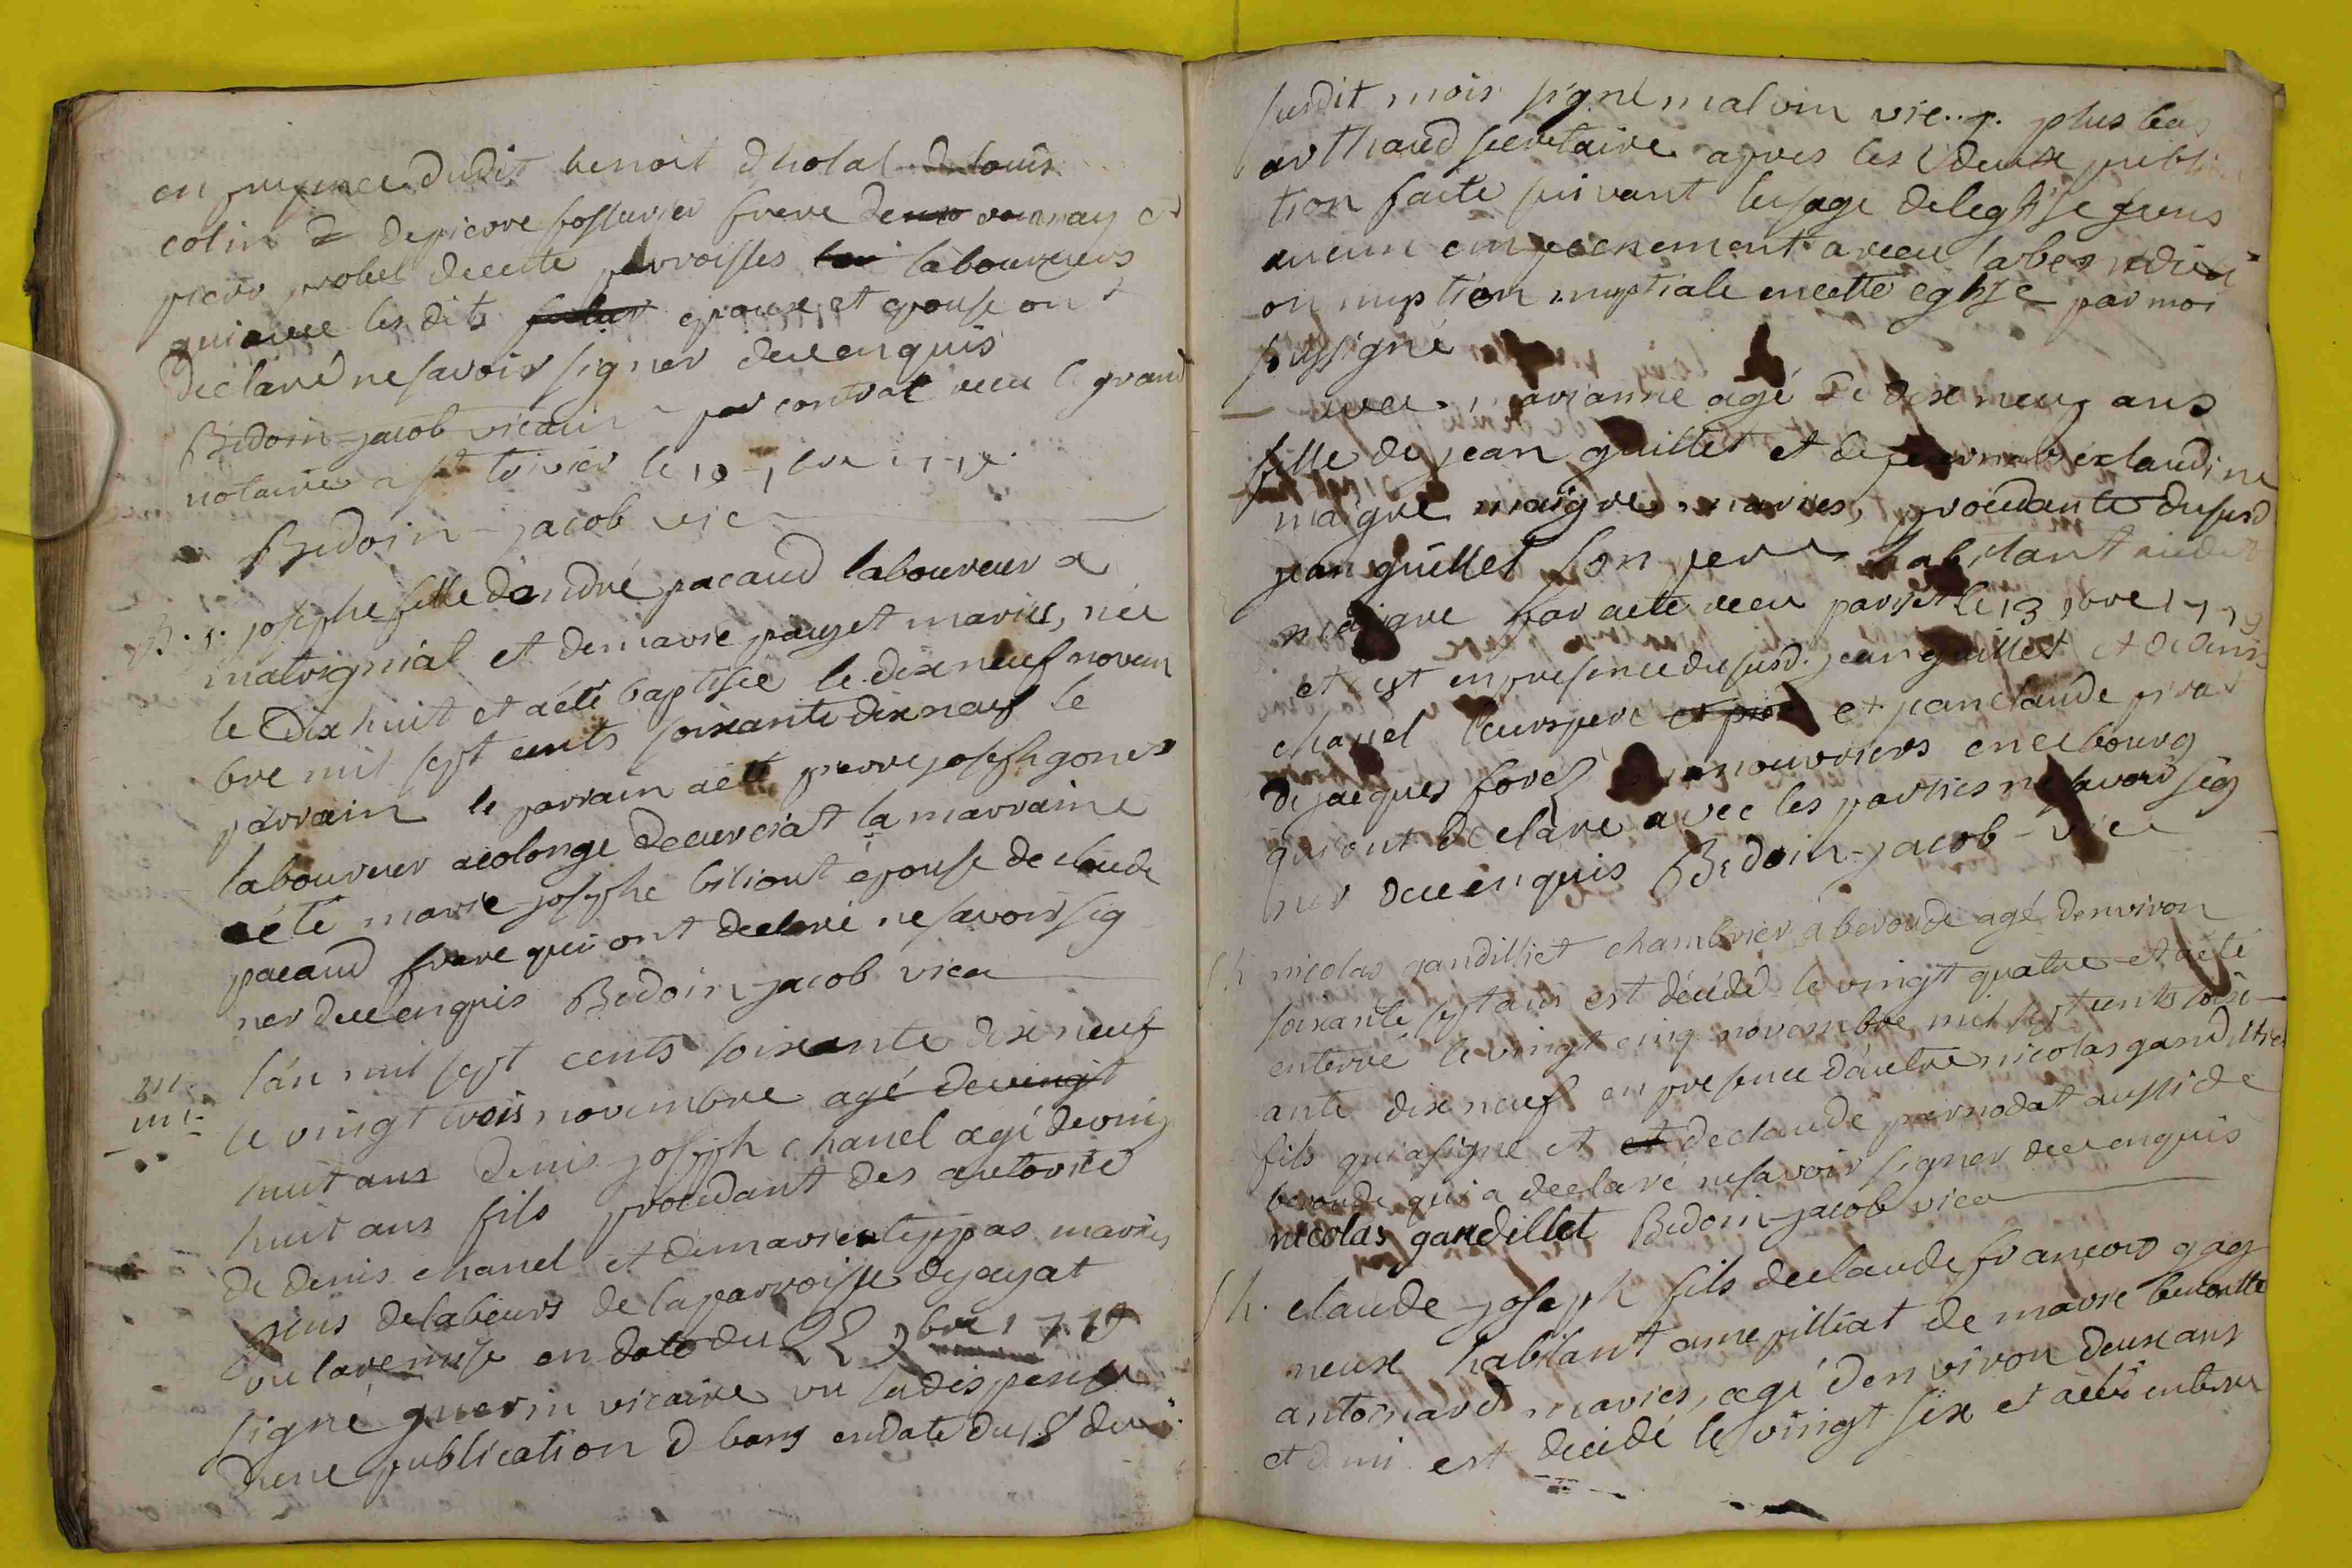 en presence dudit benoit dholal de louis
colin de pierre fossurier frere de vounnay et
pierre probel de cette parroisses laboureurs
qui avec les dits epoux et epouse ont
declaré ne savoir signer deue enquis
Bidoin-jacob vicair par contrat receu le grand
notaire a st trivier le
Bidoin-jacob vic
B. s. josephe fille dandré pacaud laboureur a
matrignial et de marie pauget maries, née
le dix huit et a été baptisée le dix neuf novem
bre mil sept cents soixante dix neuf le
parrain le parrain a eté pierre joseph gonet
laboureur a colonge de curciat la marraine
a été marie josephe biliout épouse de claude
pacaud frere qui ont declaré ne savoir sig
ner deue enquis Bidoin-jacob vica
m l'an mil sept cents soixante dix neuf
le vingt trois novembre agé de vingt
huit ans denis joseph chanel agé de ving
huit ans fils procedant des autorité
de denis chanel et de marie teppas mariés
gens de labeurs de la parroisse de jayat
vu la remise en date du 22 9bre 1779
signé guerin vicaire vu la dispense
dune publication d bans en date du 18 du
susdit mois signé malvin vic.. g. plus bas
arthaud secretaire apres les deux publi
tion faite suivant lusage de leglise sens
aucun empechement a receu la benedicti
on nuption nuptiale en cette eglise par moi
sussigné
avec marianne agé de dix neuf ans
fille de jean guillet et de claudine
maigre maigre mariés, procedante du susd
jean guillet son pere habitant audit
par acte receu le 13 9bre 1779
et est en presence du susd. jean guillet et de denis
chanel leurs pere et pier et jean claude
de jacques forel manouvriers en ce bourg
qui ont declare avec les parties ne savoir sig
ner deue enquis Bidoin-jacob-vica
sh nicolas gandilliet chambrier a beroude agé denviron
soixante sept ans est décédé le vingt quatre et a été
enterré le vingt cinq novembre mil sept cents soix-
ante dix neuf en presence dautre nicolas gandilliet
fils qui a signé et et de claude pernodat aussi de
beroude qui a declaré ne savoir signer deue enquis
nicolas gandillet Bidoin-jacob vica
sh. claude joseph fils de claude francois gag
neux habitant a mepilliat de marie benoitte
antoinard mariés, agé denviron deux ans
et demi est decédé le vingt six et a été enterré